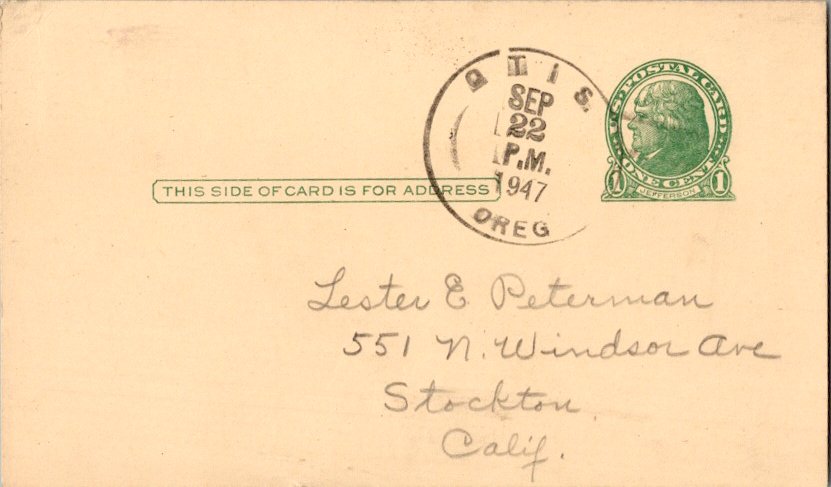 OTIS.
SEP
22
P.M.
1947
OREG
U.S. POSTAL CARD
ONE CENT
1 1
JEFFERSON
THIS SIDE OF CARD IS FOR ADDRESS
Lester E Peterman
551 N. Windsor Ave
Stockton
Calif.